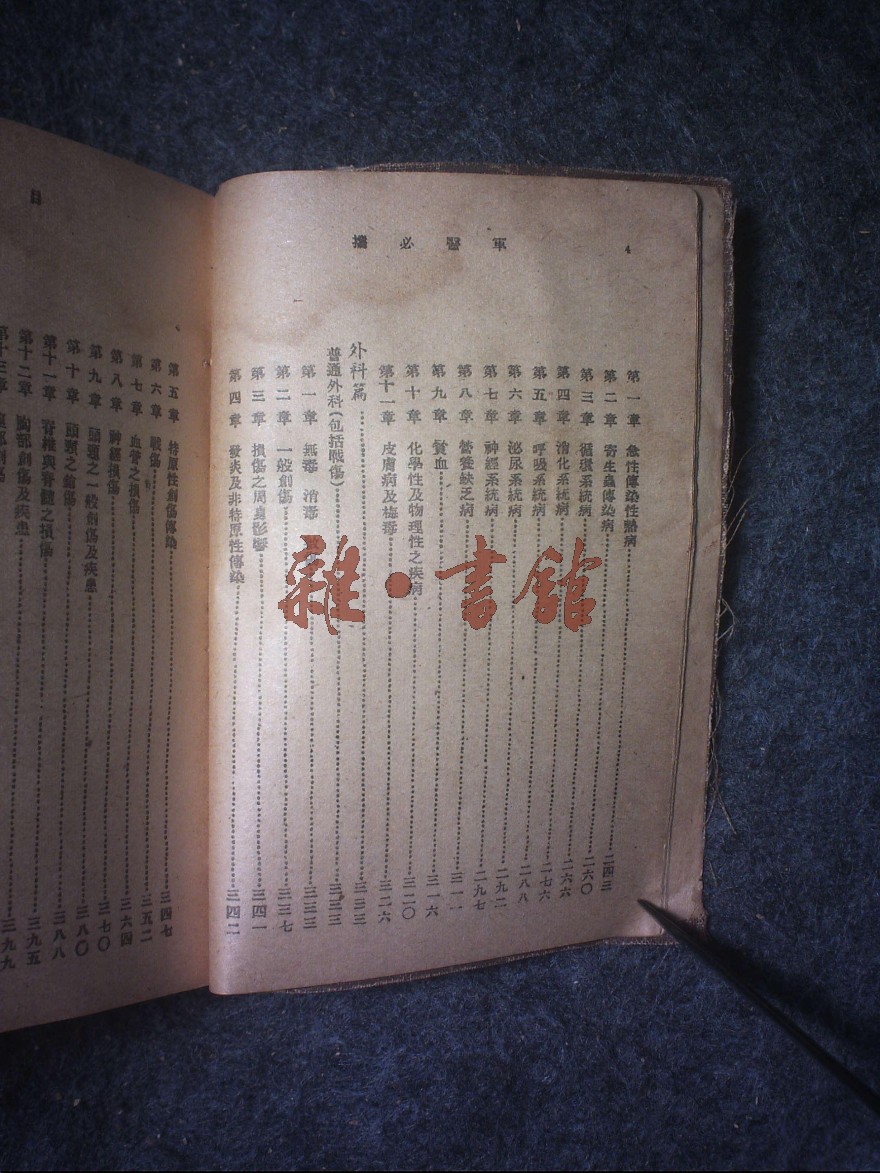 軍醫必攜
4
第一章 急性傳染性熱病……二四三
第二章 寄生蟲傳染病……二六〇
第三章 循環系統病……二六六
第四章 消化系統病……二七六
第五章 呼吸系統病……二八八
第六章 泌尿系統病……二九二
第七章 神經系統病……二九七
第八章 營養缺乏病……三一一
第九章 貧血……三一六
第十章 化學性及物理性之疾病……三二〇
第十一章 皮膚病及梅毒……三二六
外科篇……三三三
普通外科(包括戰傷)……三三三
第一章 無毒 消毒……三三三
第二章 一般創傷……三三七
第三章 損傷之周身影響……三四一
第四章 發炎及非特原性傳染……三四二
目
第五章 特原性創傷傳染……三四七
第六章 戰傷……三五二
第七章 血管之損傷……三六四
第八章 神經損傷……三七〇
第九章 頭頸之一般創傷及疾患……三八〇
第十章 頭頸之鎗傷……三八八
第十一章 脊椎與脊髓之損傷……三九五
第十二章 胸部創傷及疾患……三九九
第十三章
雜·書館